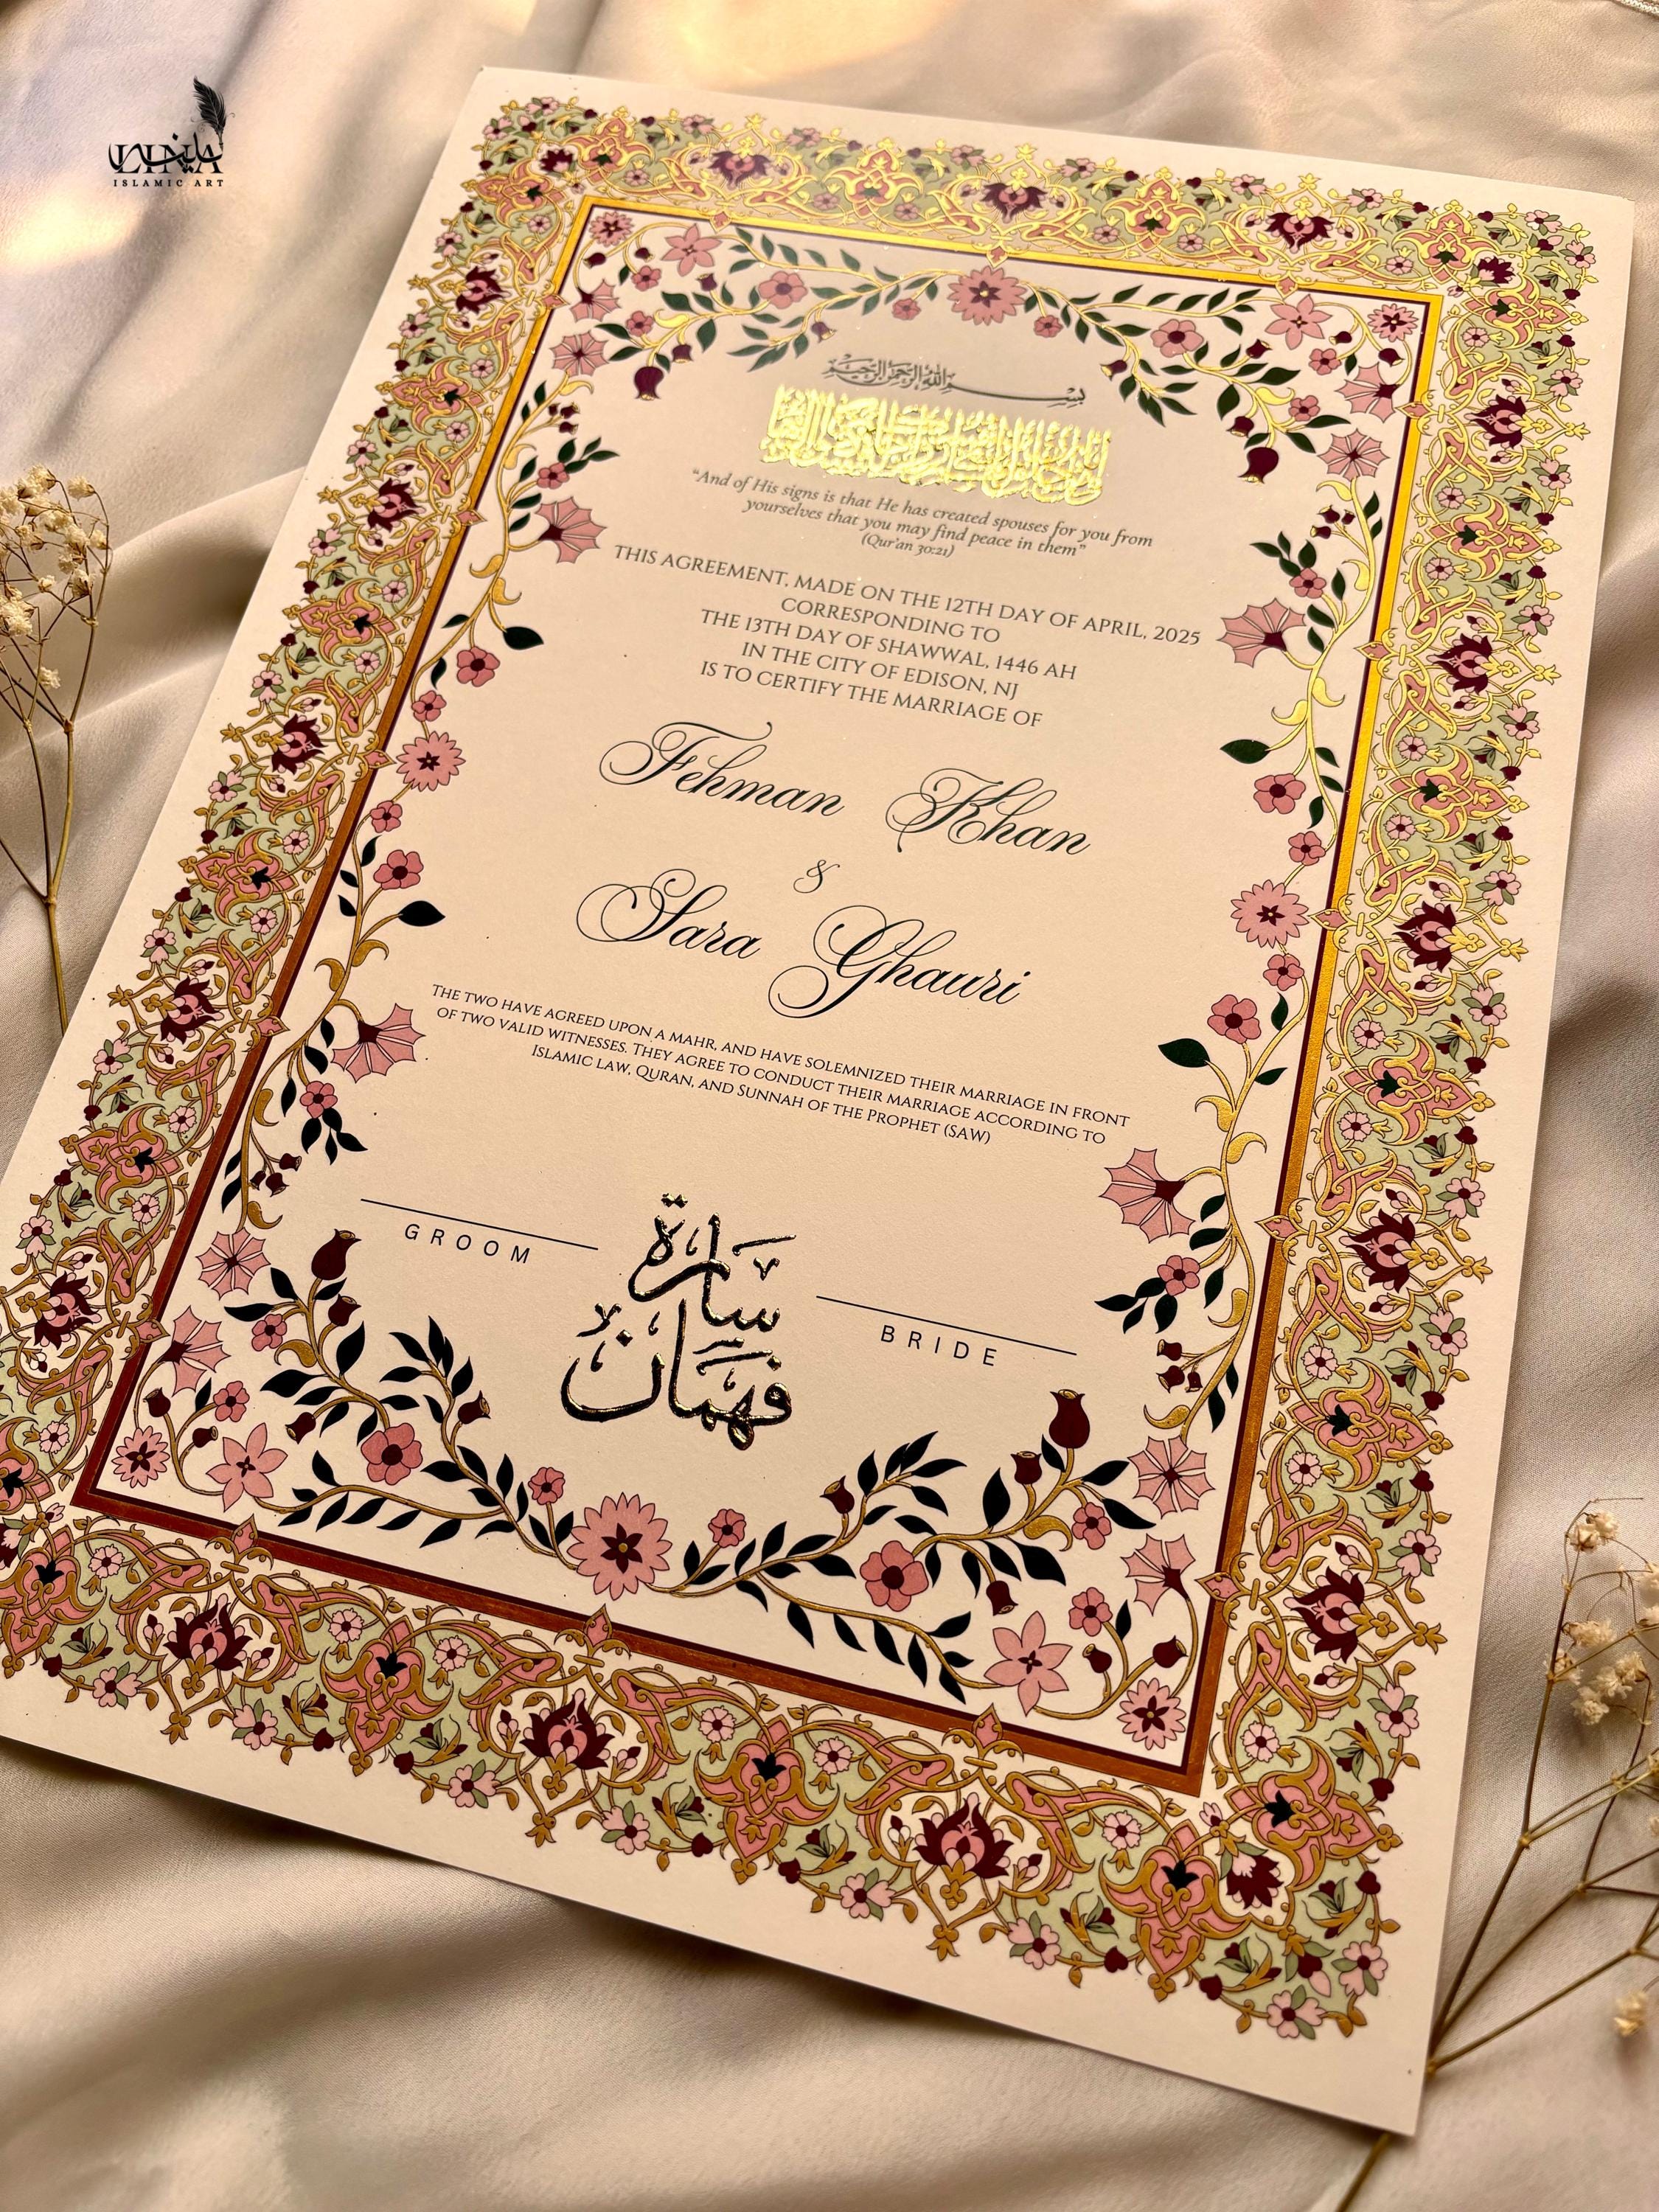 ISLAMIC ART
بسم الله الرحمن الرحيم
"And of His signs is that He has created spouses for you from
yourselves that you may find peace in them"
(Qur'an 30:21)
THIS AGREEMENT, MADE ON THE 12TH DAY OF APRIL, 2025
CORRESPONDING TO
THE 13TH DAY OF SHAWWAL, 1446 AH
IN THE CITY OF EDISON, NJ
IS TO CERTIFY THE MARRIAGE OF
Fehman Khan
&
Sara Ghauri
THE TWO HAVE AGREED UPON A MAHR, AND HAVE SOLEMNIZED THEIR MARRIAGE IN FRONT
OF TWO VALID WITNESSES. THEY AGREE TO CONDUCT THEIR MARRIAGE ACCORDING TO
ISLAMIC LAW, QURAN, AND SUNNAH OF THE PROPHET (SAW)
GROOM
سارة
فهمان
BRIDE